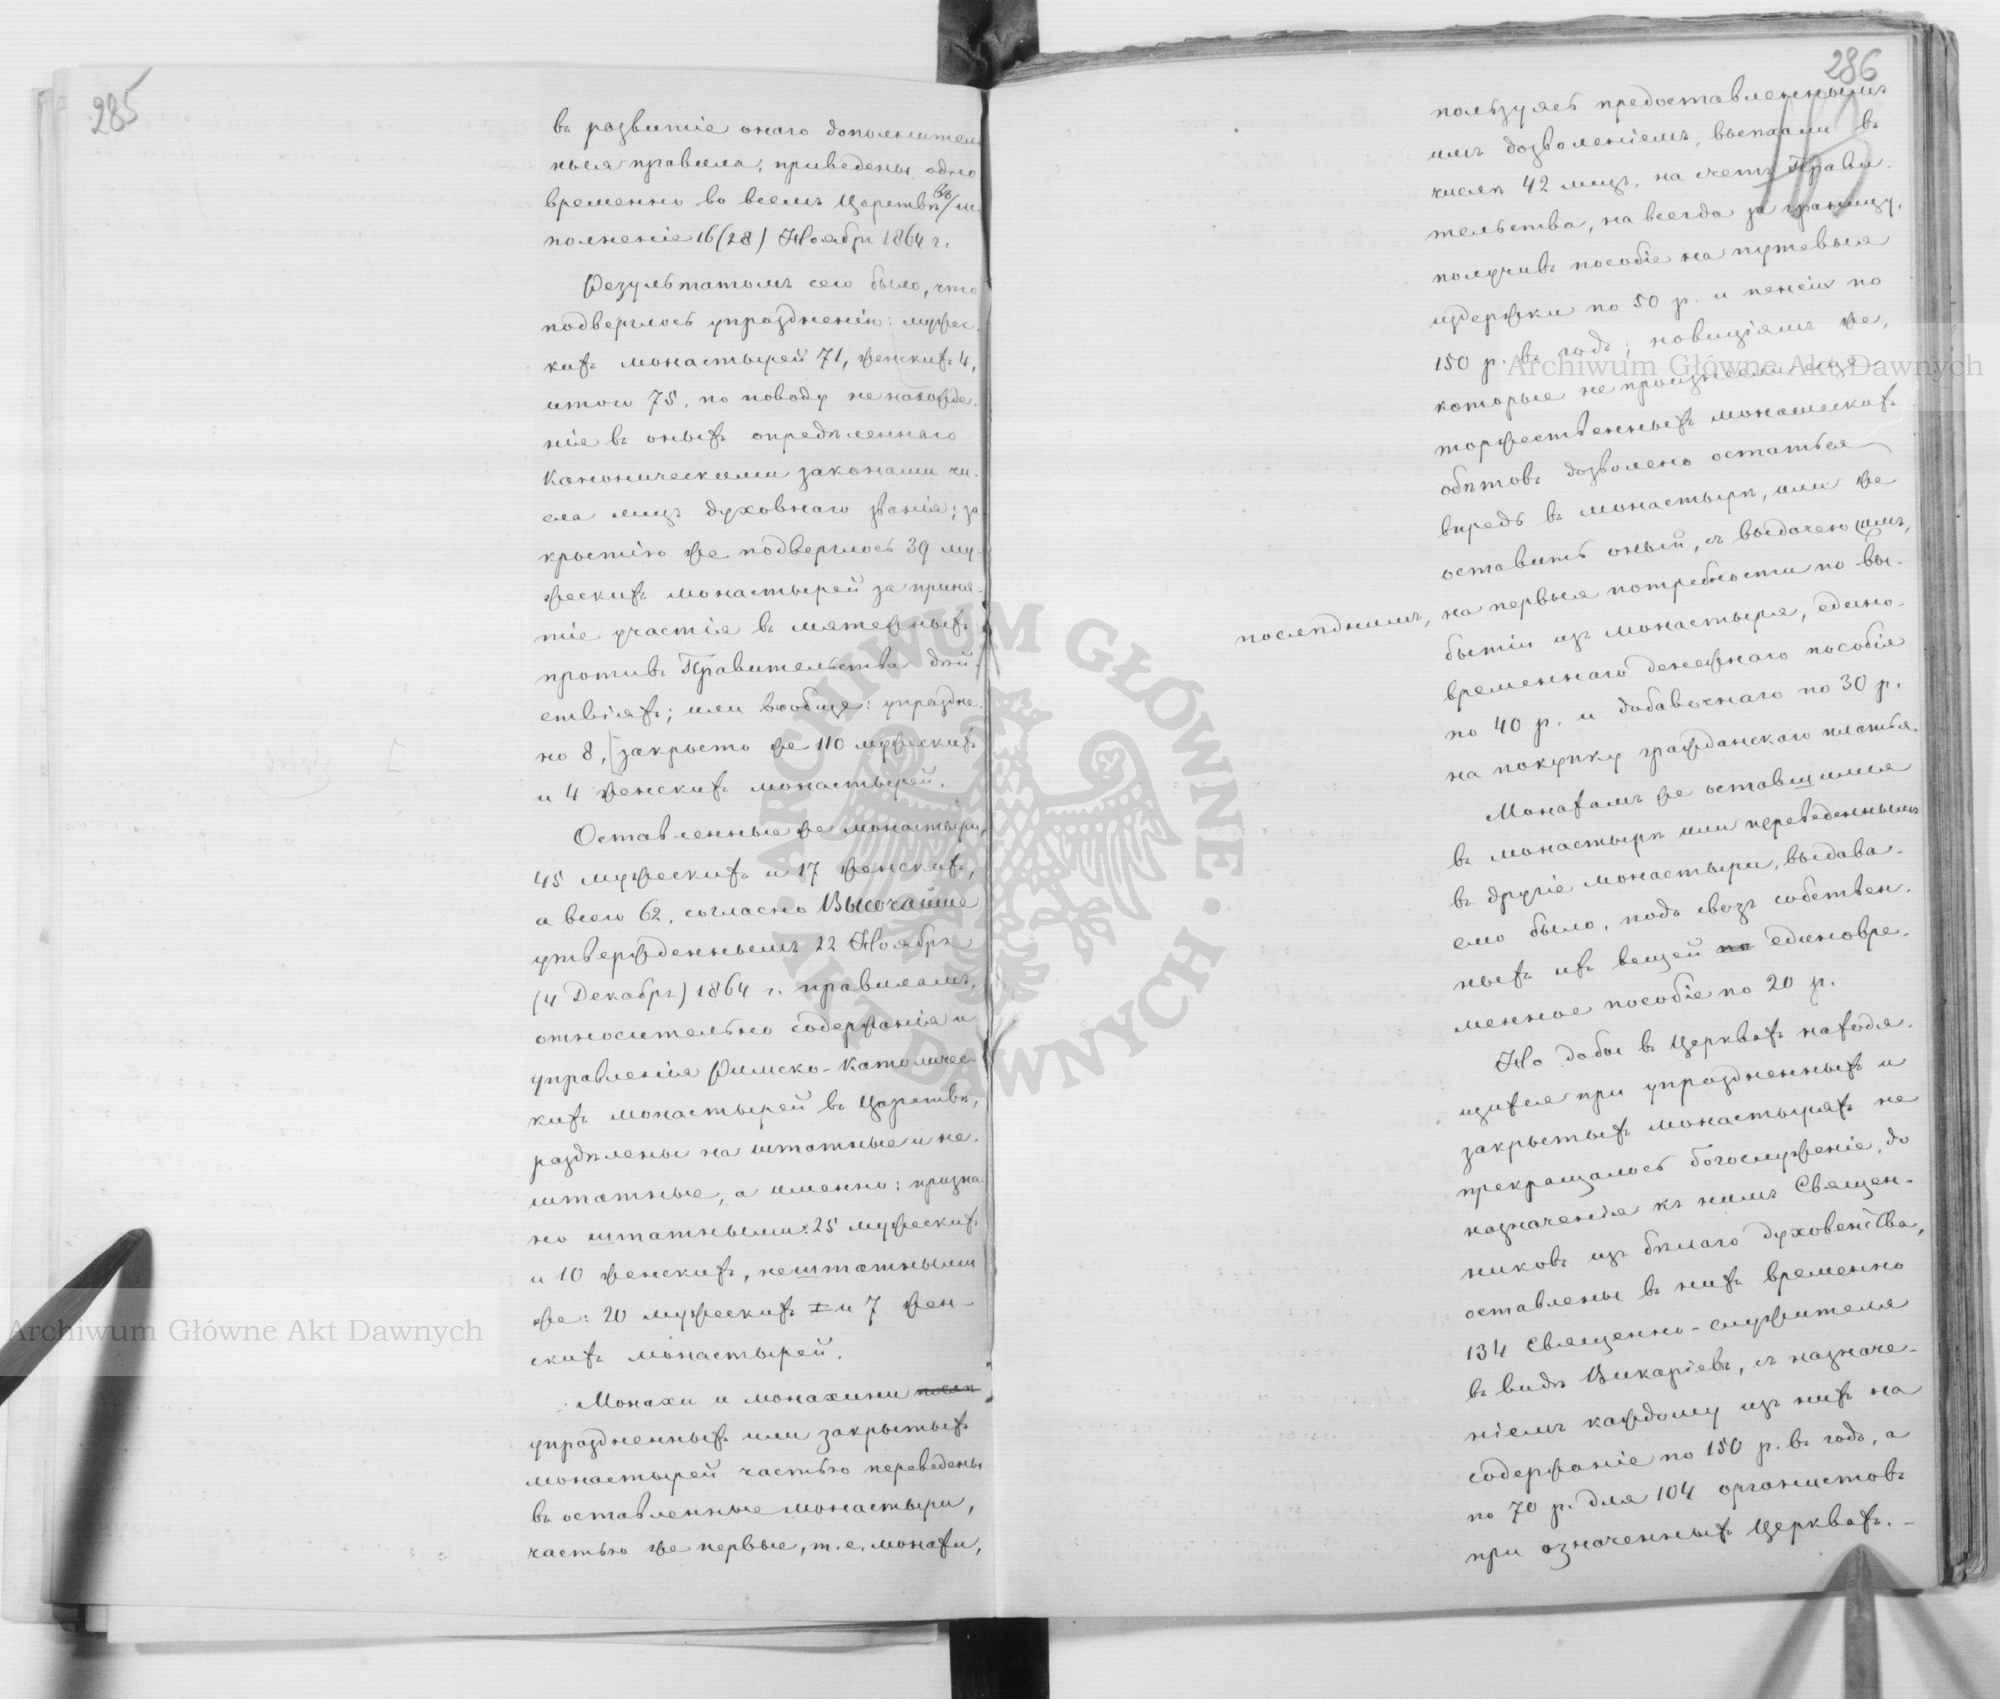 285
въ развитіе онаго дополнитель
ныя правила, приведены одно
временно во всемъ Царствѣ въ/ис
полненіе 16(28) Ноября 1864 г.
Результатомъ сего было, что
подверглось упраздненію: мужес-
кихъ монастырей 71, женскихъ 4,
итого 75, по поводу не нахожде-
нія въ оныхъ опредѣленнаго
Каноническими законами чи-
сла лицъ духовнаго званія; за
крытію же подверглось 39 му-
жескихъ монастырей за приня-
тіе участія въ мятежныхъ
противъ Правительства дѣй-
ствіяхъ; или вообще: упраздне-
но 8, [закрыто же 110 мужескихъ
и 4 женскихъ монастырей.
Оставленные же монастыри,
45 мужескихъ и 17 женскихъ,
а всего 62, согласно Высочайше
утвержденнымъ 22 Ноября
(4 Декабря) 1864 г. правиламъ,
относительно содержанія и
управленія Римско-Католичес-
кихъ монастырей въ Царствѣ,
раздѣлены на штатные и не-
штатные, а именно: призна-
но штатными: 25 мужескихъ
и 10 женскихъ, нештатными
же: 20 мужескихъ и 7 жен-
скихъ монастырей.
Монахи и монахини послѣ
упраздненныхъ или закрытыхъ
монастырей частью переведены
въ оставленные монастыри,
частью же первые, т. е. монахи,
286
пользуясь предоставленнымъ
имъ дозволеніемъ, выехали въ
числѣ 42 лицъ, на счетъ Прави-
тельства, на всегда за границу,
получивъ пособіе на путевыя
издержки по 50 р. и пенсіи по
150 р. въ годъ; новиціямъ же,
которые не произнесли еще
торжественныхъ монашескихъ
обѣтовъ дозволено остаться
впредь въ монастырѣ, или же
оставить оный, съ выдачею имъ,
послѣднимъ, на первыя потребности по вы-
бытіи изъ монастыря, едино-
временнаго денежнаго пособія
по 40 р. и добавочнаго по 30 р.
на покупку гражданскаго платья.
Монахамъ же оставшимся
въ монастырѣ или переведеннымъ
въ другіе монастыри, выдава-
емо было, подъ свозъ собствен-
ныхъ ихъ вещей по единовре-
менное пособіе по 20 р.
Но дабы въ Церквахъ находя-
щихся при упраздненныхъ и
закрытыхъ монастыряхъ не
прекращалось богослуженіе, до
назначенія къ нимъ Священ-
никовъ изъ бѣлаго духовенства,
оставлены въ нихъ временно
134 Священно-служителя
въ видѣ Викаріевъ, съ назначе-
ніемъ каждому изъ нихъ на
содержаніе по 150 р. въ годъ, а
по 70 р. для 104 органистовъ
при означенныхъ Церквахъ. -
Archiwum Główne Akt Dawnych
Archiwum Główne Akt Dawnych
ARCHIWUM GŁÓWNE · AKT DAWNYCH ·